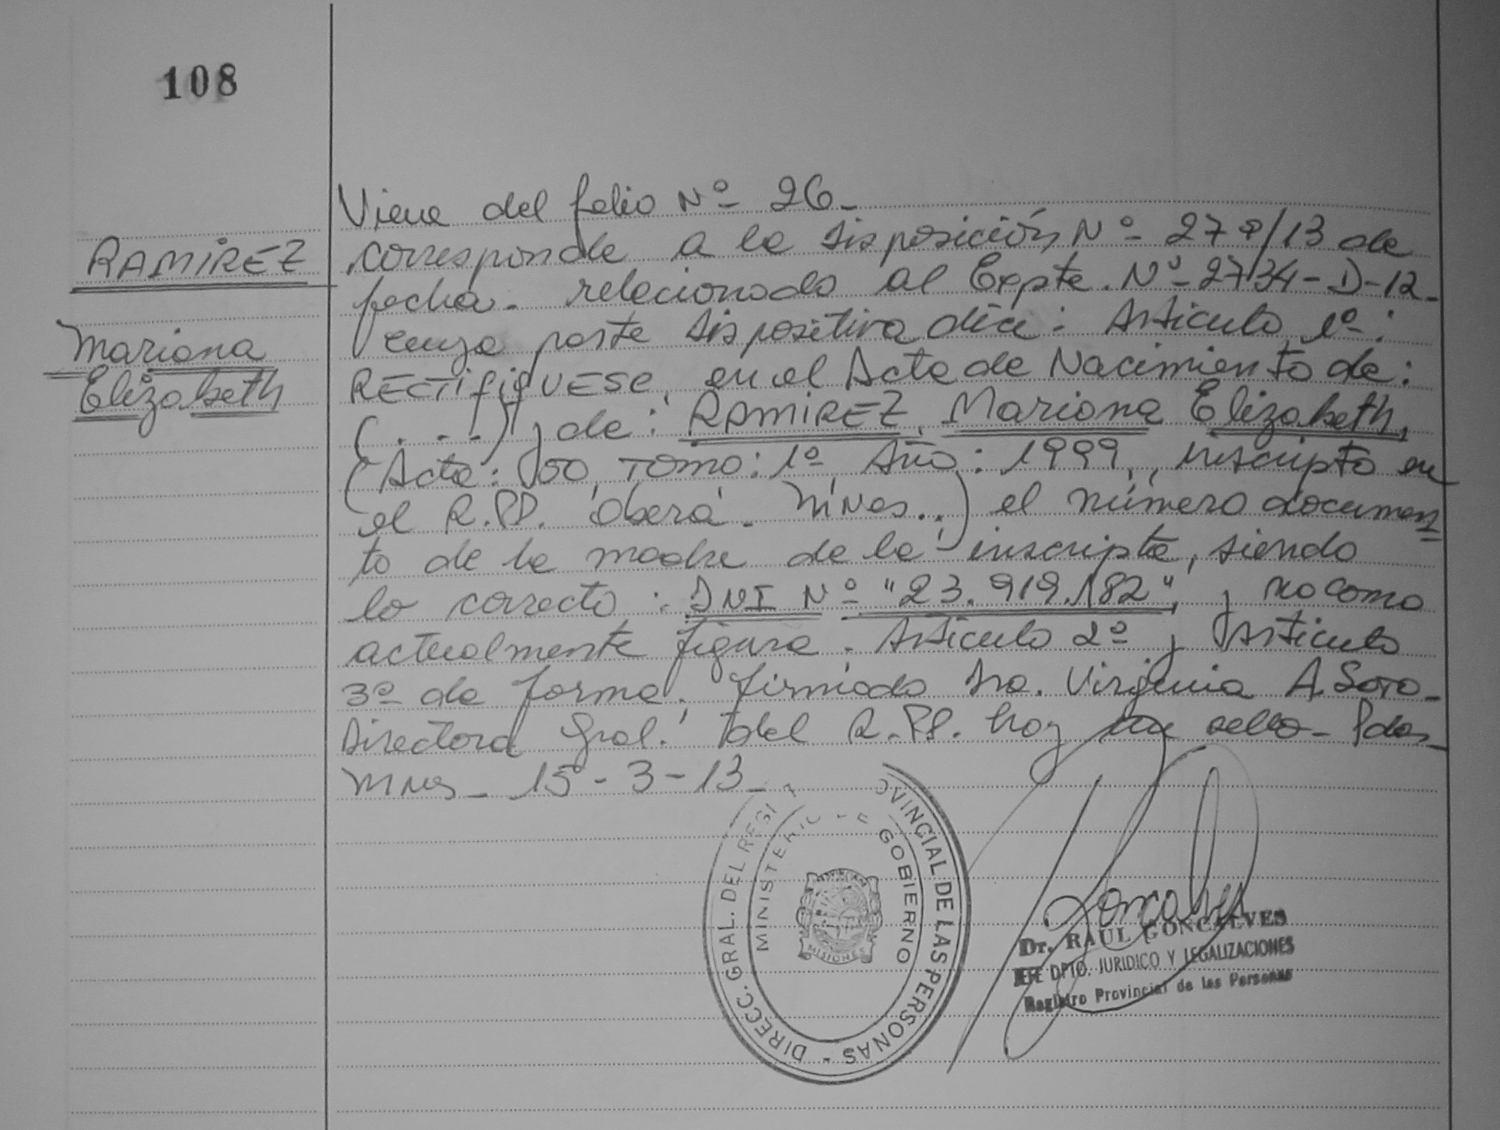 108
RAMIREZ
Mariana
Elizabeth
Viene del folio Nº 26-
corresponde a la disposición Nº 278/13 de
fecha - relacionado al Expte. Nº 2734-D-12-
cuya parte dispositiva dice: Artículo 1º:
RECTIFIQUESE, en el Acta de Nacimiento de:
(. . .) de: RAMIREZ, Mariana Elizabeth,
(Acta: 50, Tomo: 1º, Año: 1999, inscripta en
el R.PP. Oberá. Mnes..) el número documen
to de la madre de la inscripta, siendo
lo correcto: DNI Nº "23.919.182", y no como
actualmente figura. Artículo 2º y Artículo
3º de forma. firmado Sra. Virginia A. Soto-
Directora Gral. del R.PP. hoy hay sello- Pdas-
Mnes- 15-3-13-
DIRECC. GRAL. DEL REGI OVINCIAL DE LAS PERSONAS -
MINISTERIO DE GOBIERNO
MISIONES
Goncalves
Dr. RAUL GONCALVES
JEFE DPTO. JURIDICO Y LEGALIZACIONES
Registro Provincial de las Personas